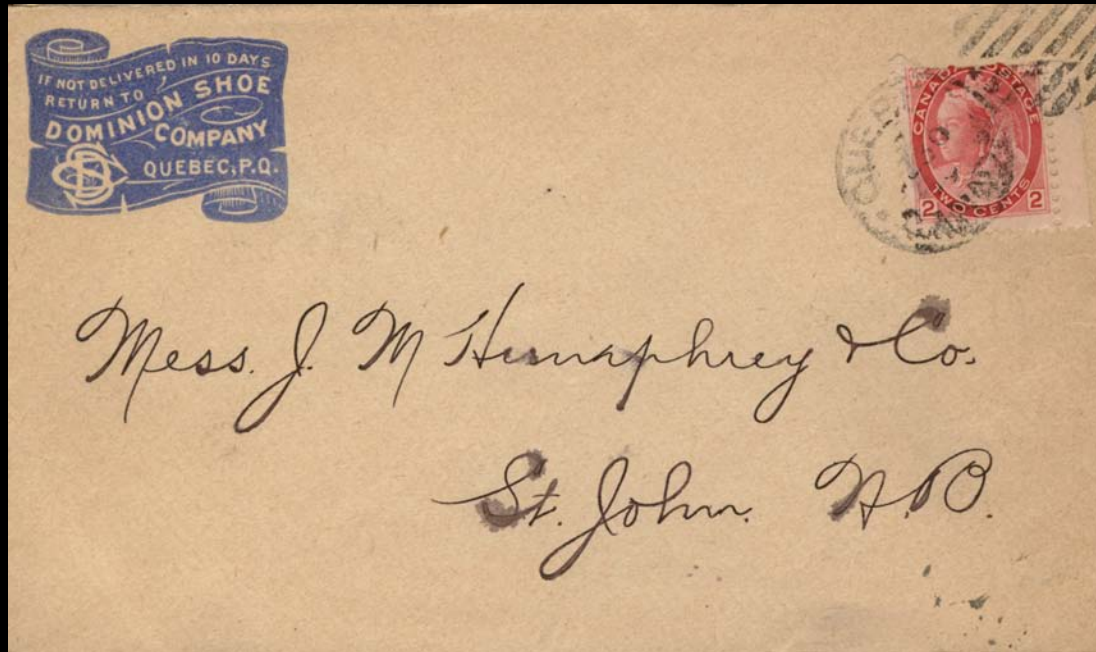 IF NOT DELIVERED IN 10 DAYS
RETURN TO
DOMINION SHOE
COMPANY
QUEBEC, P.Q.
CANADA POSTAGE
TWO CENTS
2 2
QUEBEC
Mess. J. M Humaphrey & Co.
St. John. N.B.